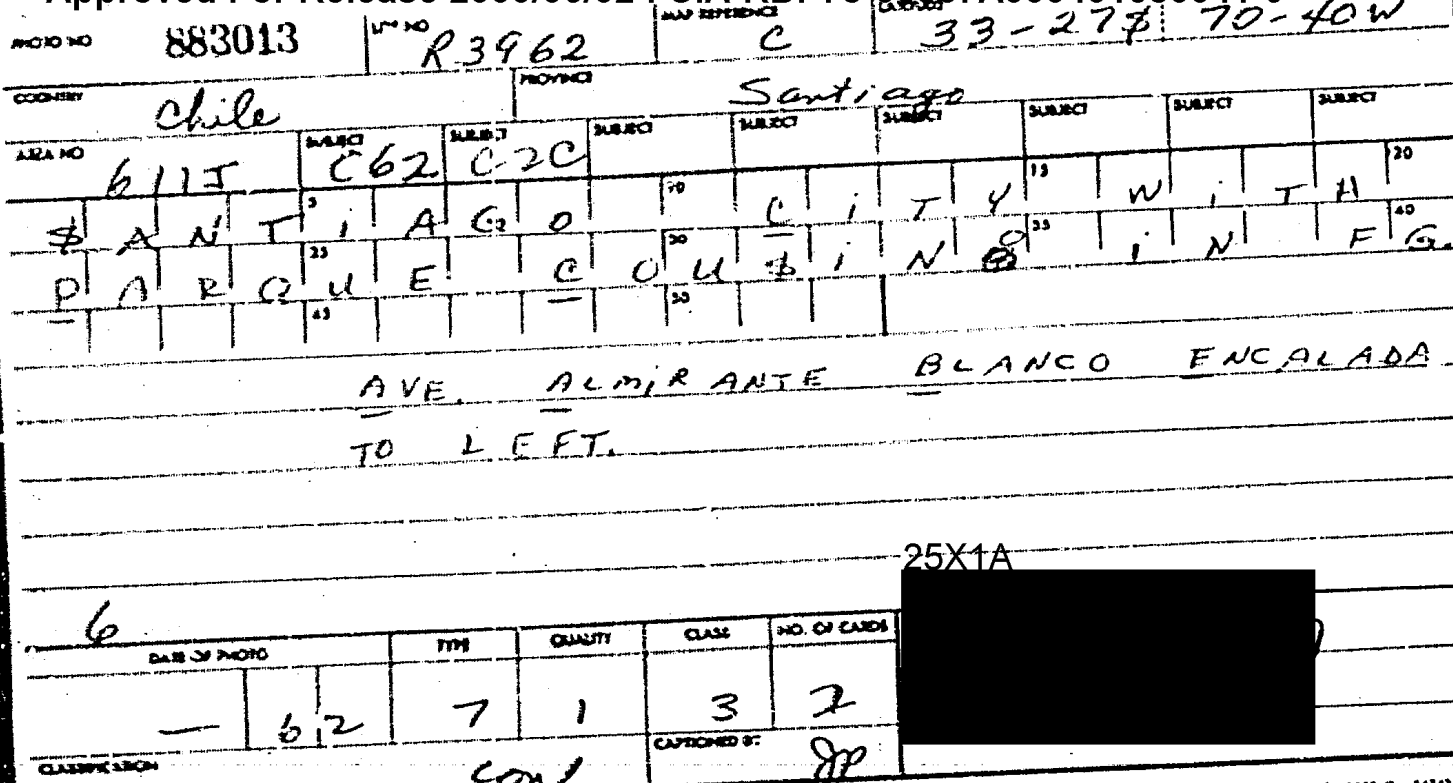 PHOTO NO 883013 R3962 MAP REFERENCE C 33-27$ 70-40W
COUNTRY Chile PROVINCE Santiago
AREA NO 611J SUBJECT C62 SUBJECT C2C SUBJECT SUBJECT SUBJECT SUBJECT SUBJECT SUBJECT
5 10 15 20
$ANTiAGO CiTY WiTH
25 30 35 40
PARQUE COU$iNO iN FG.
45 50
AVE. ALMiRANTE BLANCO ENCALADA
TO LEFT.
25X1A
6
DATE OF PHOTO TYPE QUALITY CLASS NO. OF CARDS
— 62 7 1 3 2
CLASSIFICATION CAPTIONED BY: